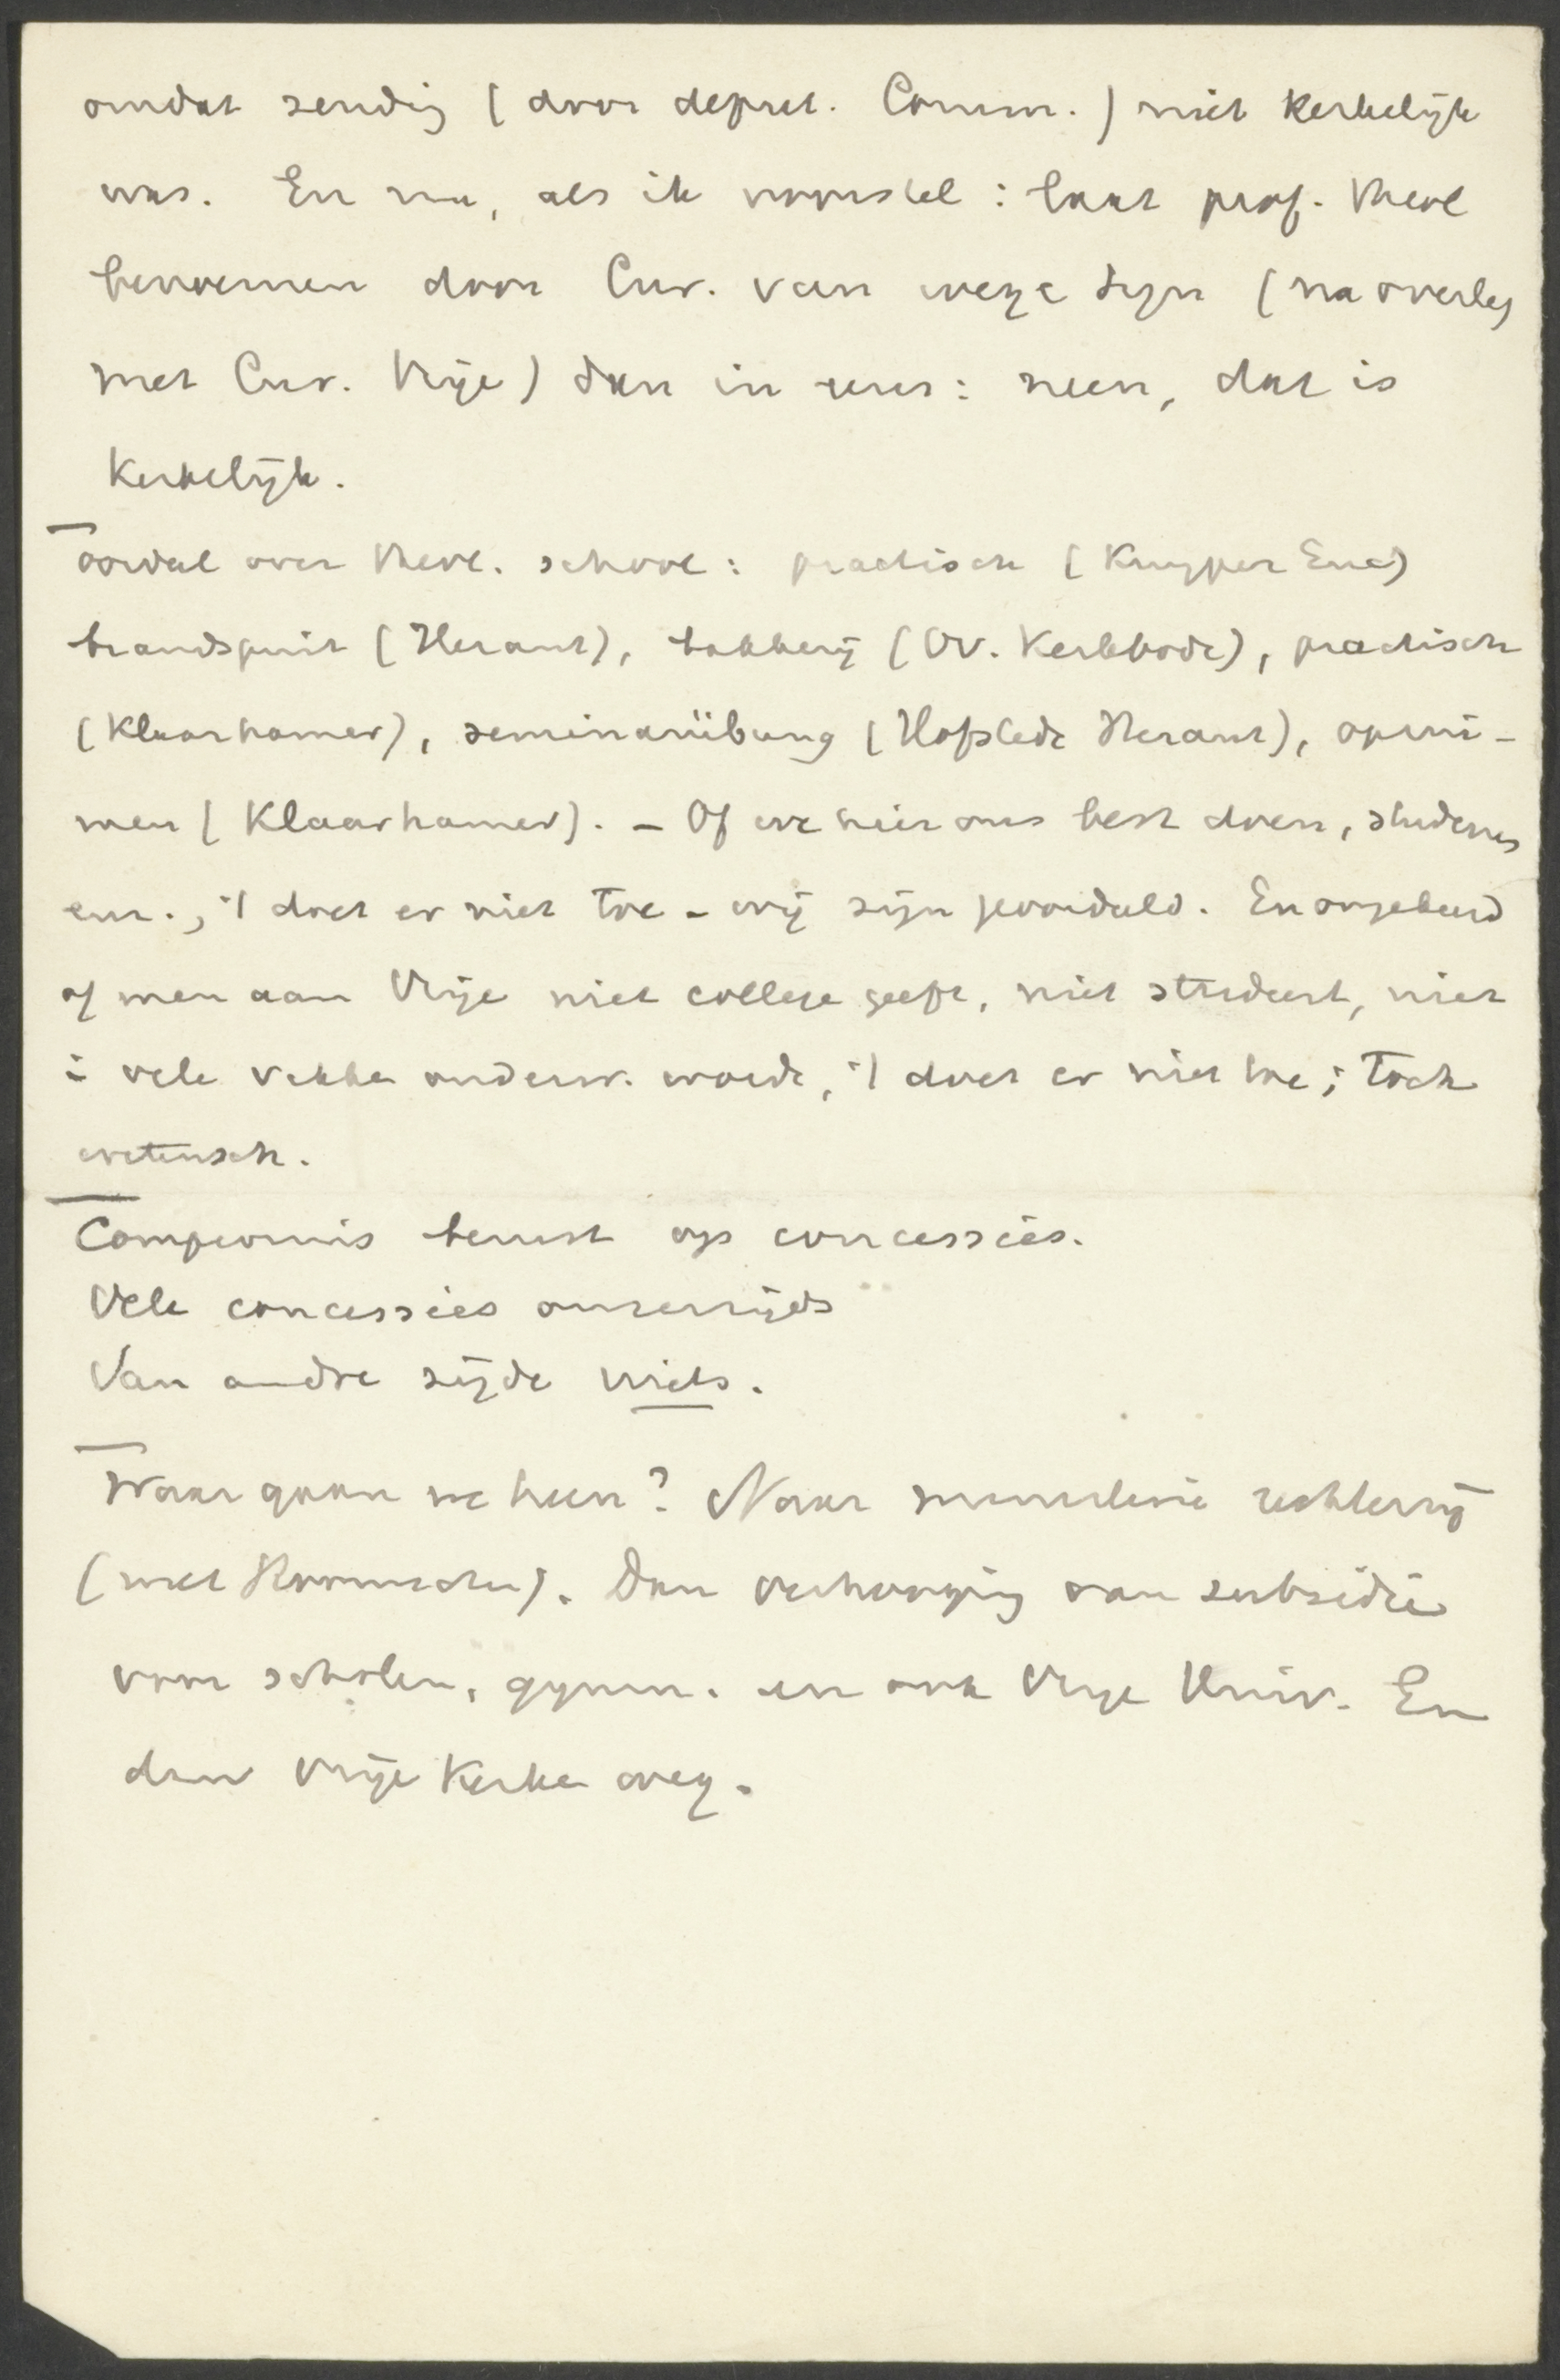 omdat zending (door deput. Comm.) niet kerkelijk
was. En nu, als ik voorstel: laat prof. theol
benoemen door Cur. van wege Syn (na overleg
met Cur. Vrije) dan in eens: neen, dat is
kerkelijk.
Oordeel over theol. school: practisch (Kuyper Enc)
brandspuit (Heraut), bakkerij (Ov. Kerkbode), practisch
(Klaarhamer), seminarübung (Hofstede Heraut),
men (Klaarhamer). - Of we hier ons best doen, studenten
enz., 't doet er niet toe - wij zijn geoordeeld. En omgekeerd
of men aan Vrije niet college geeft, niet studeert, niet
i vele vakke onderw. worde, 't doet er niet toe; toch
wetensch.
Compromis berust op concessies.
Vele concessies onzerzijds
Van andre zijde niets.
Waar gaan we heen? Naar ministerie rechterzij
(met Roomschen). Dan verhooging van subsidie
voor scholen, gymn. en ook Vrije Univ. En
dan Vrije Kerke weg.